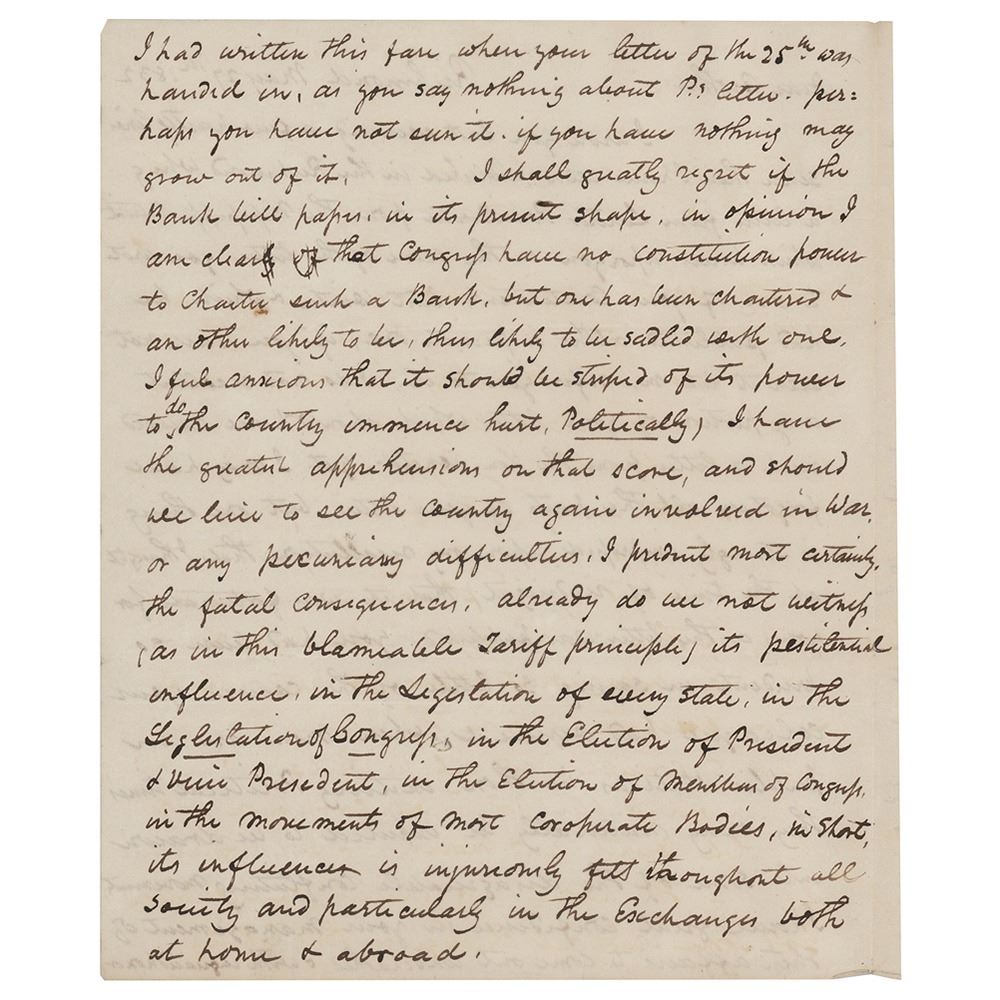 I had written this fare when your letter of the 25th was
handed in, as you say nothing about P.s letter. per=
haps you have not seen it. if you have nothing may
grow out of it. I shall greatly regret if the
Bank bill papes, in its present shape, in opinion I
am clear that Congress have no constitution power
to Charter such a Bank, but one has been chartered &
an other likely to be, thus likely to be sadled with one.
I feel anxious that it should be striped of its power
to do the Country immence hurt, Politically, I have
the greatest apprehensions on that score, and should
we live to see the Country again involved in War,
or any pecuniary difficulties, I predict most certainly,
the fatal consequences, already do we not witness
(as in this blameable Tariff principle) its pestilential
influence, in the Legeslation of every state, in the
Leglestation of Congress, in the Election of President
& Vice President, in the Election of Members of Congress,
in the movements of most Coroperate Bodies, in Short,
its influences is injuriously felt throughout all
society and particularly in the Exchanges both
at home & abroad.